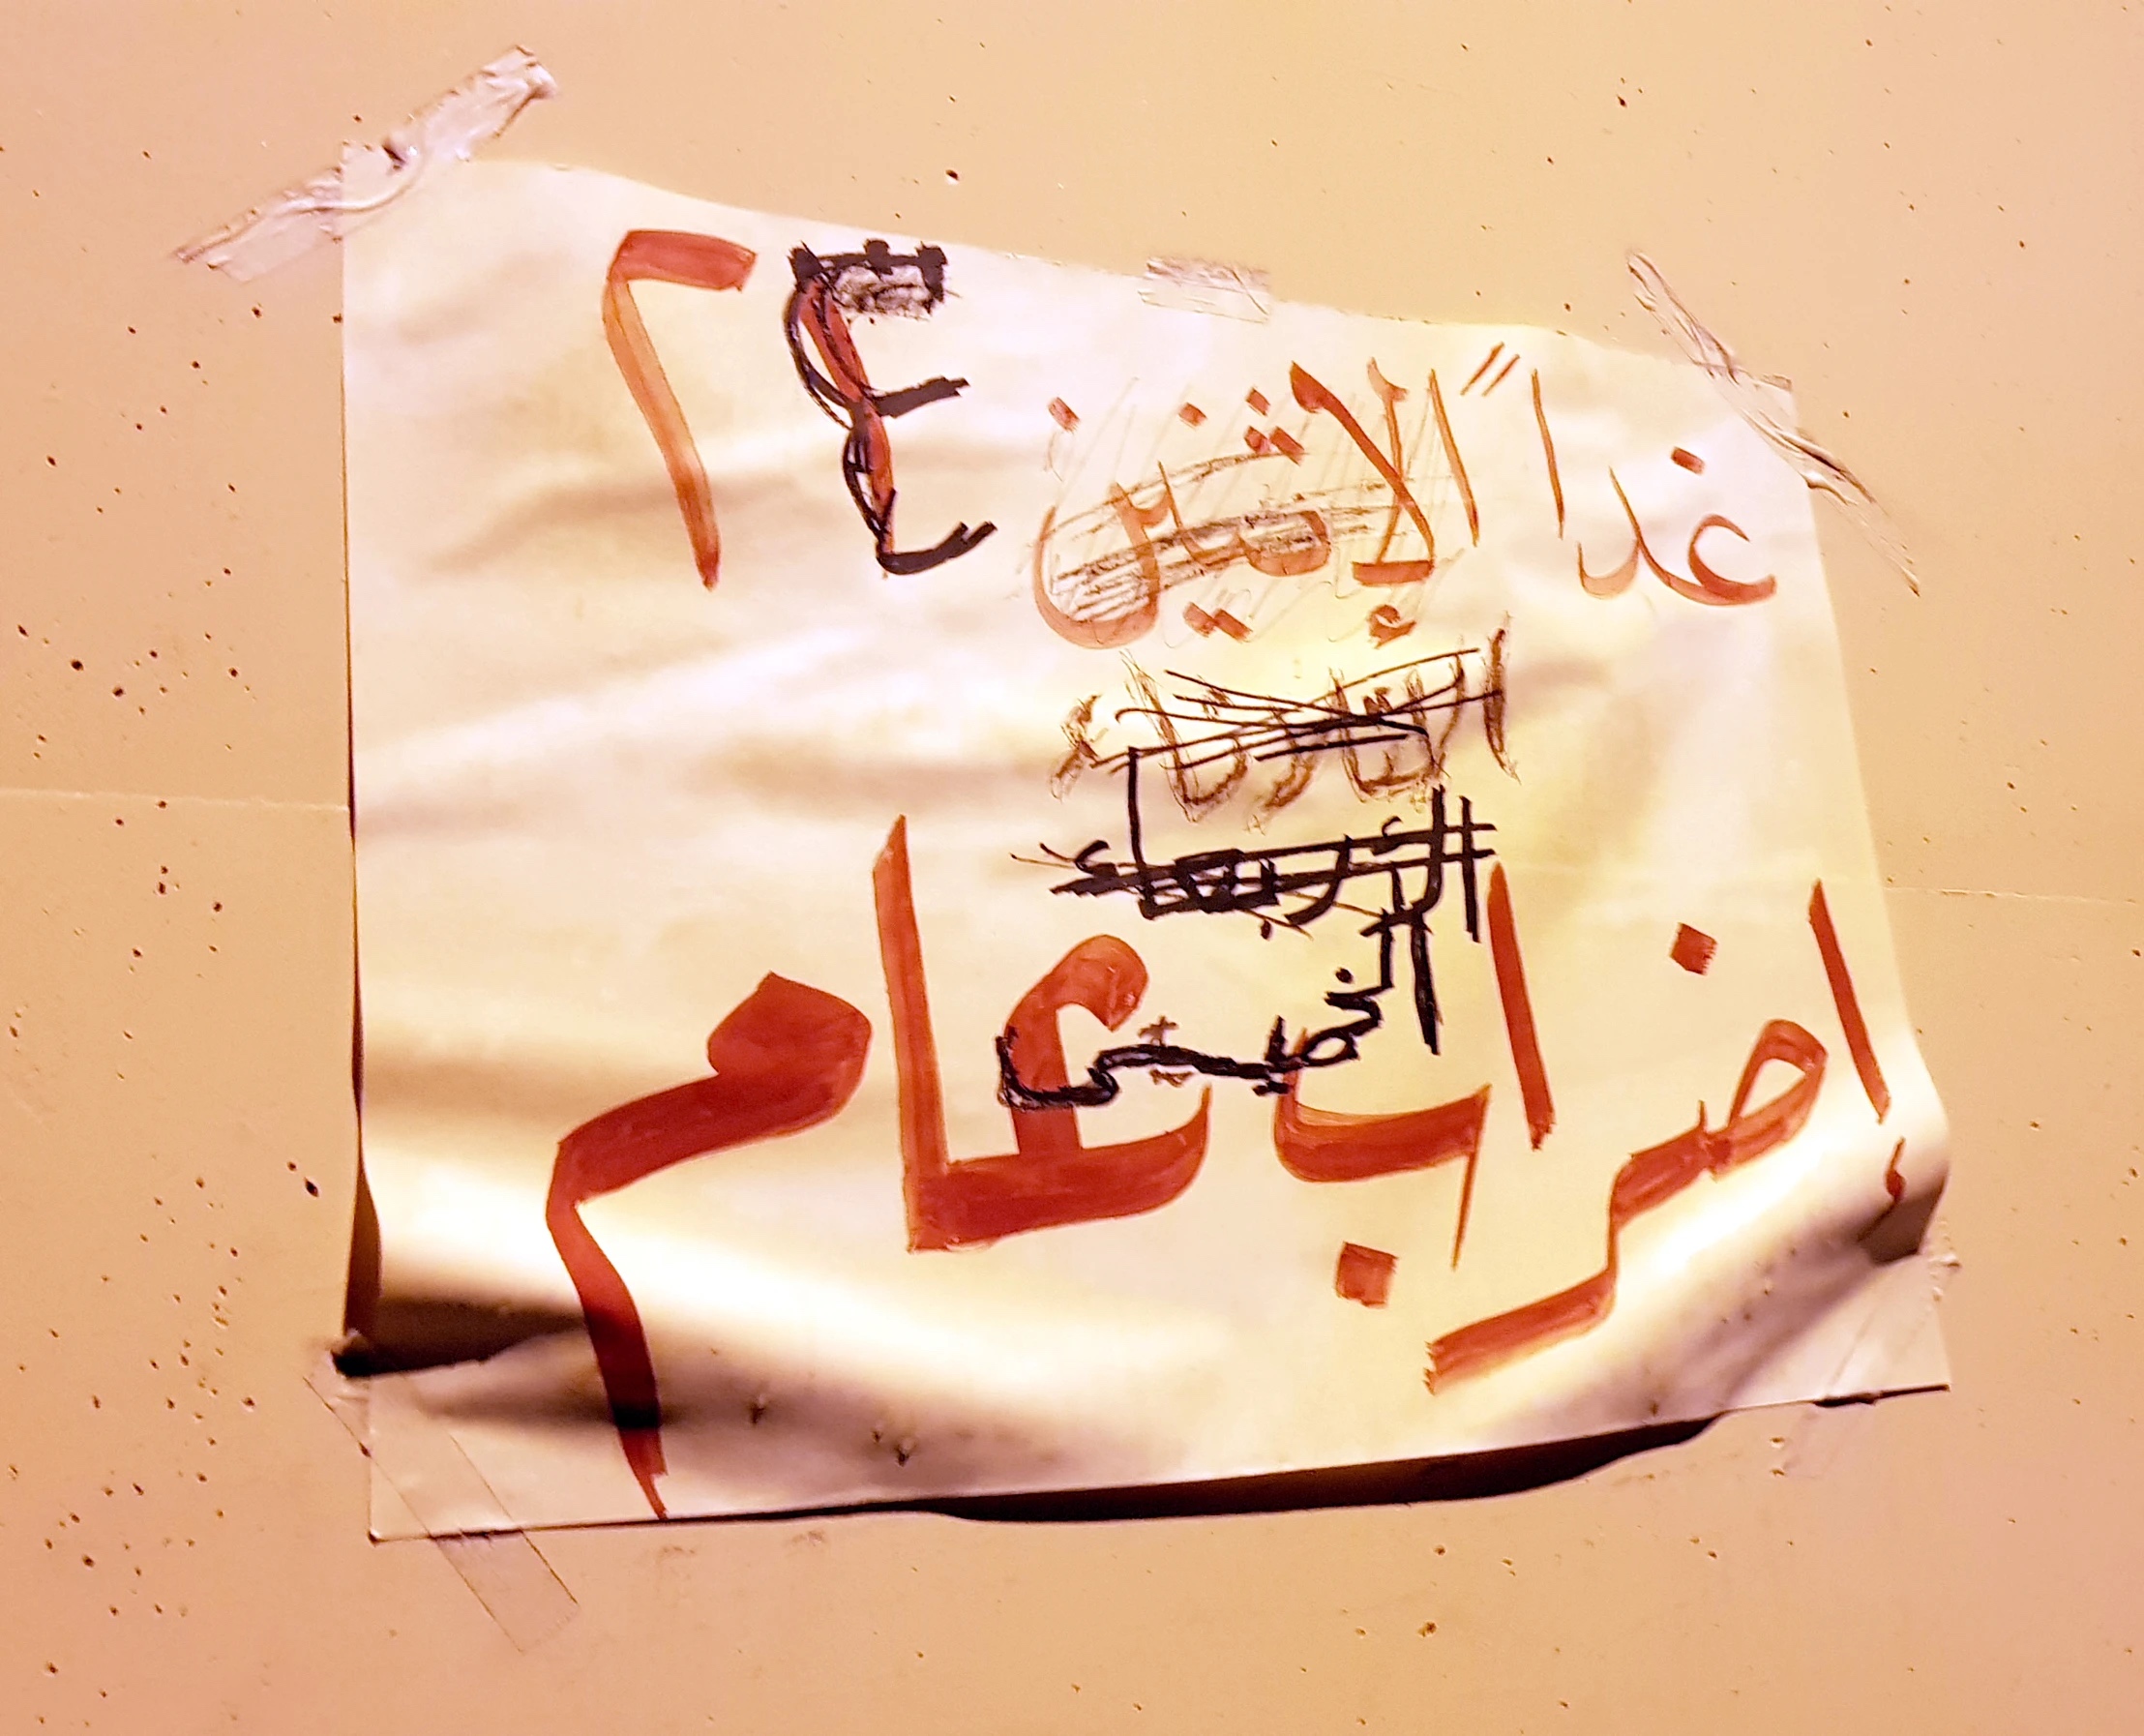 غداً الإثنين ٢٤
الثلاثاء
الأربعاء
الخميس
إضراب عام